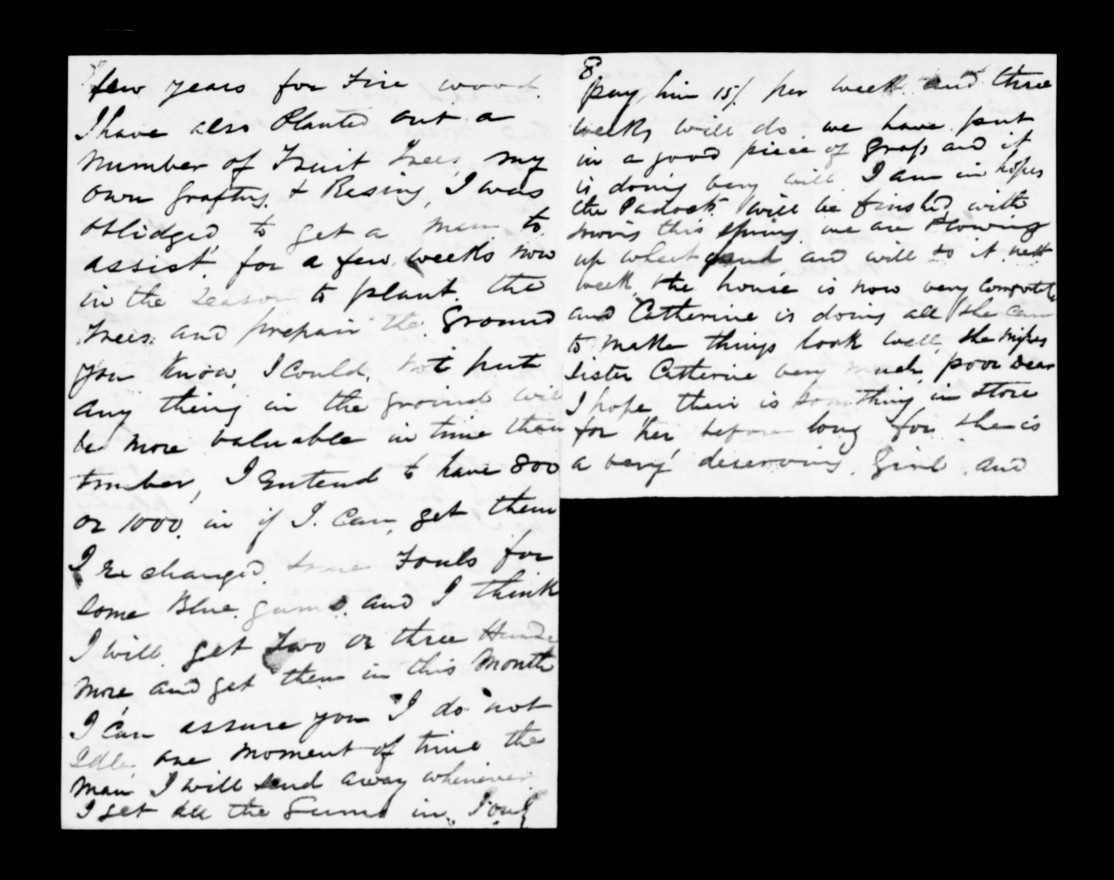 few years for Fire wood.
I have also Planted out a
number of Fruit Trees, my
own grafting & Resing, I was
oblidged to get a man to
assist, for a few weeks now
in the Season to plant. the
Trees. and prepair the Ground
you know, I could, not put
any thing in the ground will
be more valuable in time than
timber, I Entend to have 800
or 1000. in if I. Can, get them
I Exchanged. some Fouls for
some Blue. gums. and I think
I will get Two or three Hund
more and get them in this Month
I can assure you I do not
Idle, one moment of time the
man I will send away whenever
I get all the Gums in, I only
8
pay, him 15/. per week and three
weeks will do. we have put
in a good piece of grass and it
is doing very will. I am in hopes
the Padock will be finished with
this spring. we are Plowing
up wheat and will to it next
week, the house is now very compotble
and Catherine is doing all she can
to make things look well, she misses
Sister Catherine very much, poor Dear
I hope their is something in store
for her before long for she is
a very deserving. Girl. and